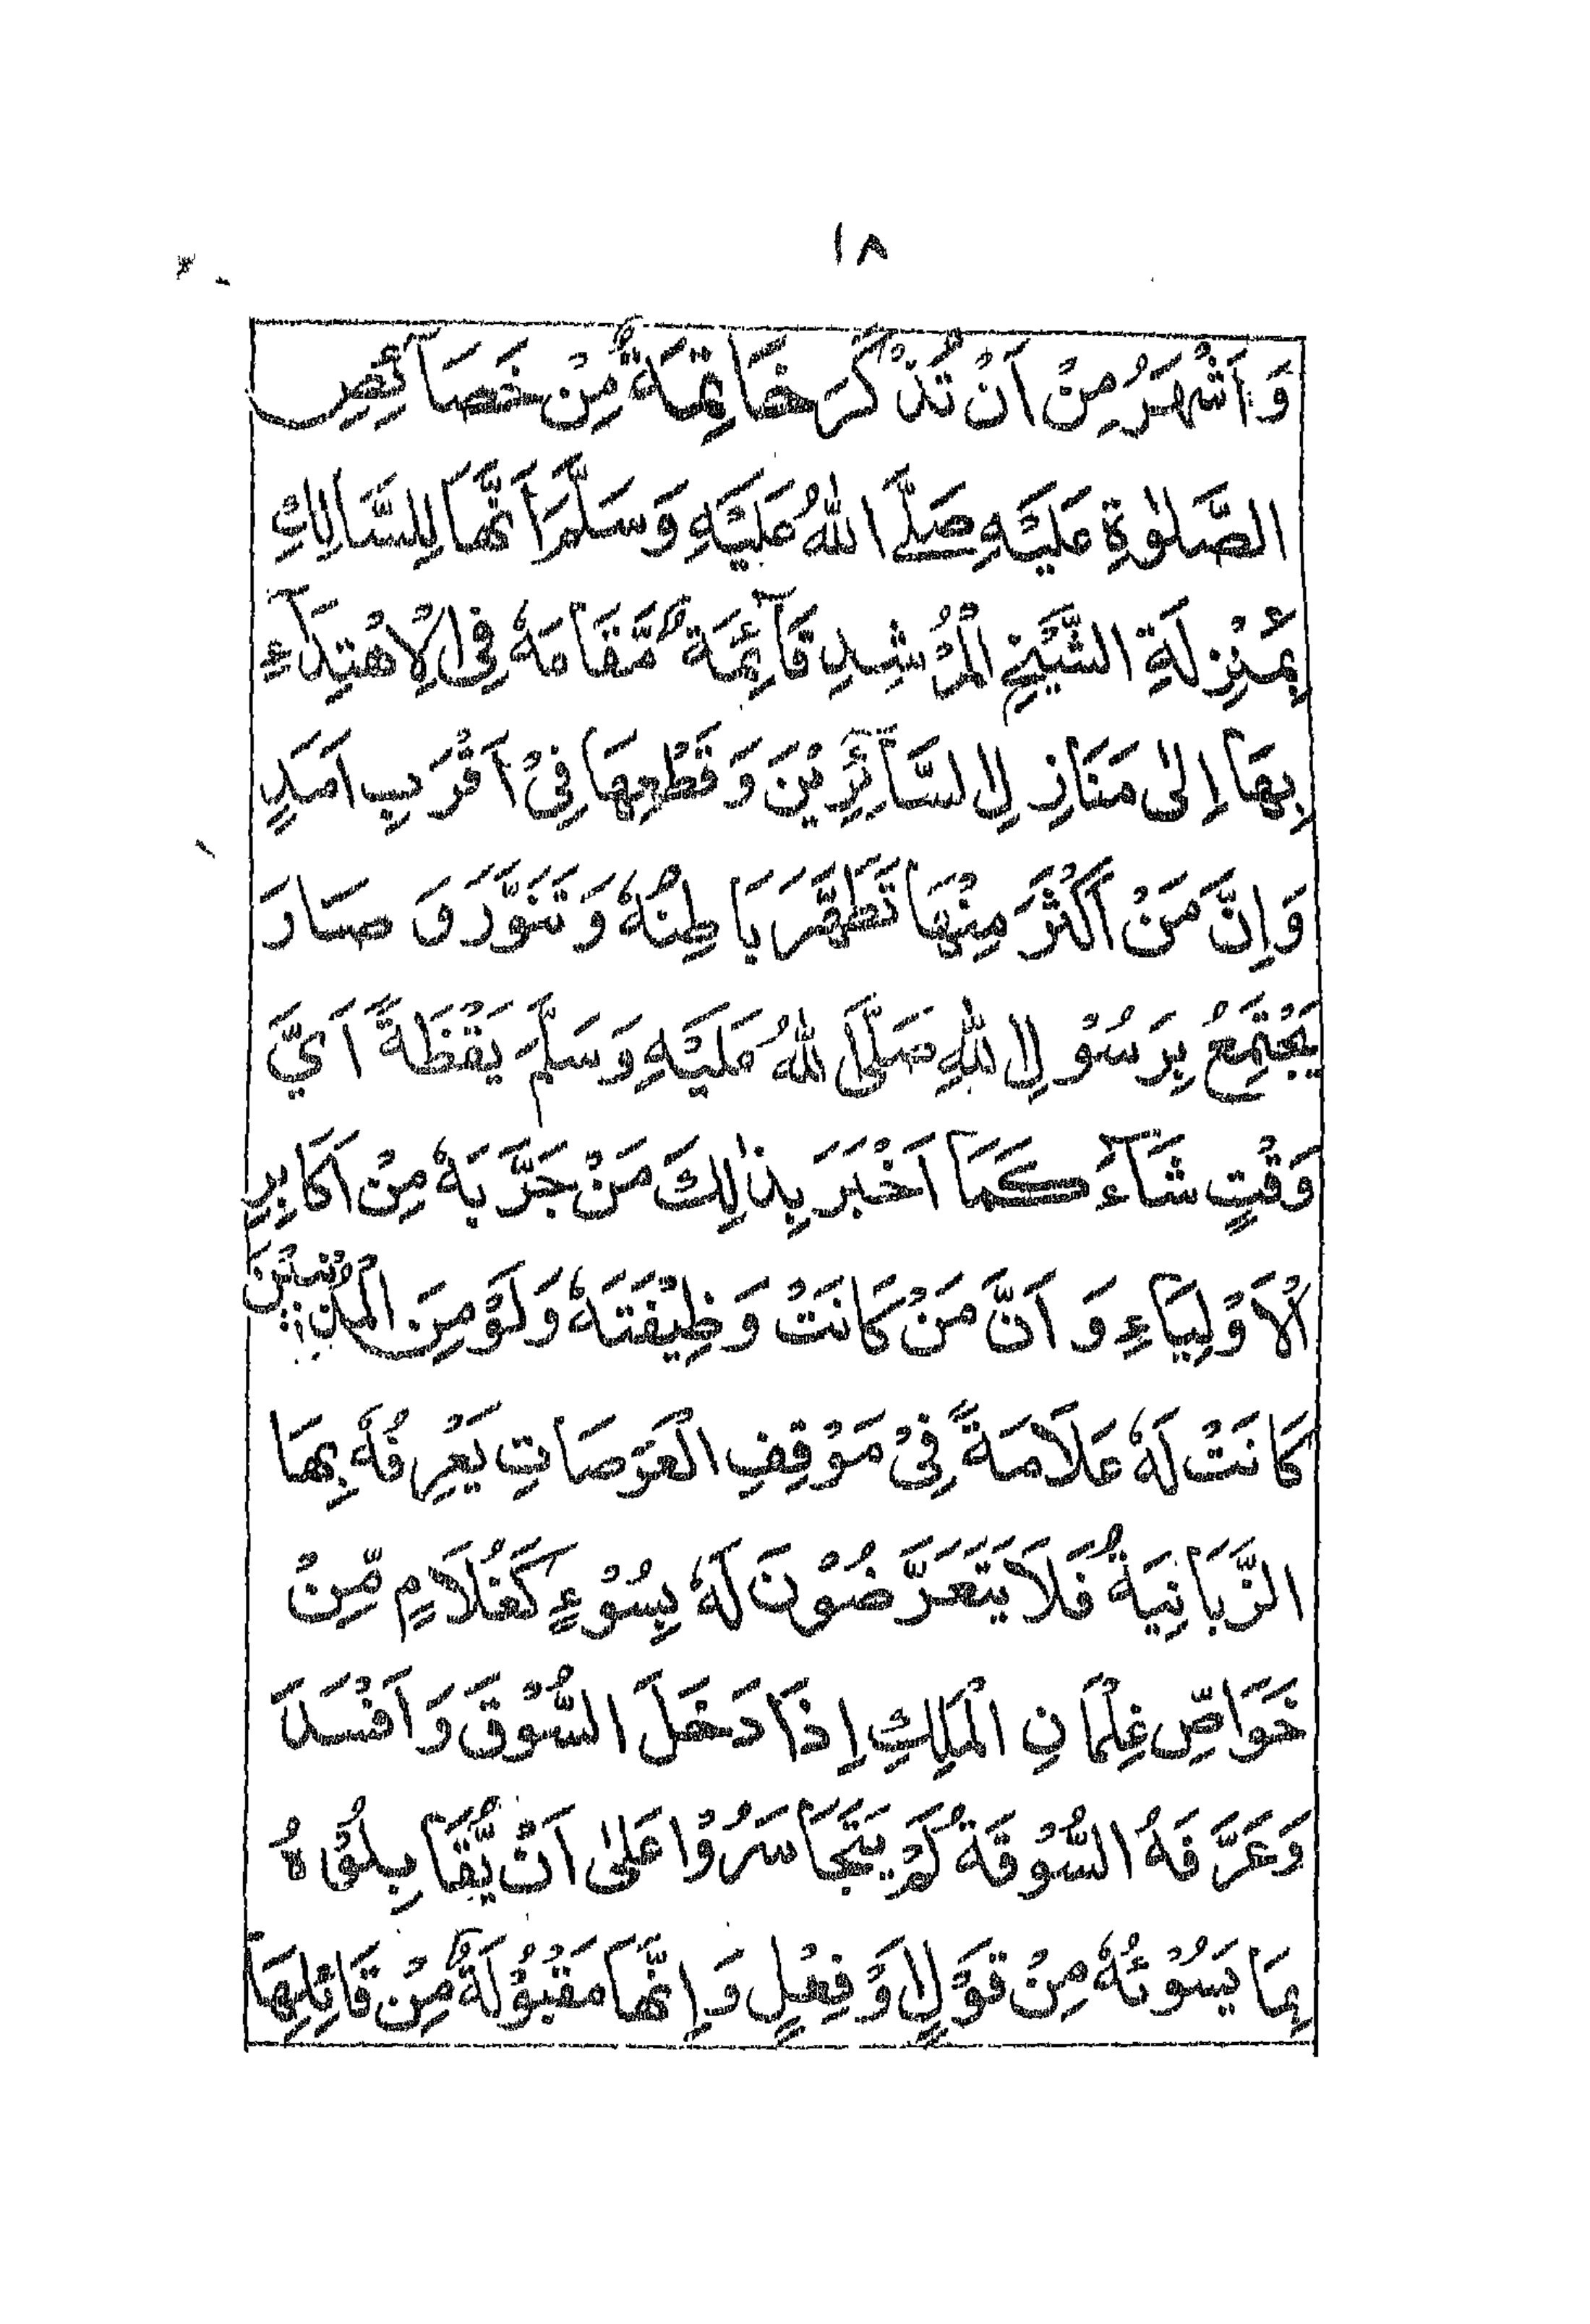 ١٨
وَاَشْهَرُ مِنْ اَنْ تُذْكَرَ خَاتِمَةٌ مِّنْ خَصَآئِصِ
الصَّلٰوةِ عَلَيْهِ صَلَّے اللهُ عَلَيْهِ وَسَلَّمَ اَنَّهَا لِلسَّالِكِ
بِمَنْزِلَةِ الشَّيْخِ الْمُرْشِدِ قَآئِمَةٌ مَّقَامَهٗ فِى الْاِهْتِدَآءِ
بِهَا اِلٰى مَنَازِلِ السَّآئِرِيْنَ وَقَطْعِهَا فِىْ اَقْرَبِ اَمَدٍ
وَاِنَّ مَنْ اَكْثَرَ مِنْهَا تَطَهَّرَ بَاطِنُهٗ وَتَنَوَّرَ وَ صَارَ
يَجْتَمِعُ بِرَسُوْلِ اللهِ صَلَّى اللهُ عَلَيْهِ وَسَلَّمَ يَقْظَةً اَيَّ
وَقْتٍ شَآءَ كَمَا اَخْبَرَ بِذٰلِكَ مَنْ جَرَّبَهٗ مِنْ اَكَابِرِ
الْاَوْلِيَاءِ وَ اَنَّ مَنْ كَانَتْ وَظِيْفَتَهٗ وَلَوْ مِنَ الْمُذْنِبِيْنَ
كَانَتْ لَهٗ عَلَامَةً فِىْ مَوْقِفِ الْعَرَصَاتِ يَعْرِفُهٗ بِهَا
الزَّبَانِيَةُ فَلَا يَتَعَرَّضُوْنَ لَهٗ بِسُوْءٍ كَغُلَامٍ مِّنْ
خَوَاصِّ غِلْمَانِ الْمَلِكِ اِذَا دَخَلَ السُّوْقَ وَاَفْسَدَ
وَعَرَّفَهُ السُّوْقَةُ لَمْ يَتَجَاسَرُوْا عَلٰى اَنْ يُّقَابِلُوْهُ
بِمَا يَسُوْئُهٗ مِنْ قَوْلٍ وَّفِعْلٍ وَاِنَّهَا مَقْبُوْلَةٌ مِّنْ قَائِلِهَا